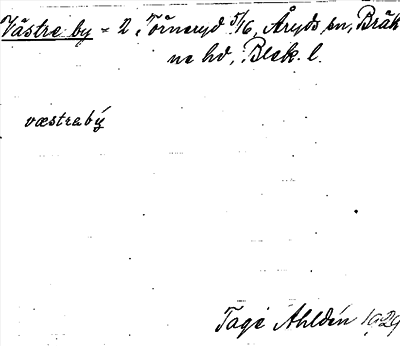 Västre by = 2 Törneryd 5/16, Åryds sn, Bräk
ne hd, Blek. l.
væstrabý
Tage Ahldén 1929